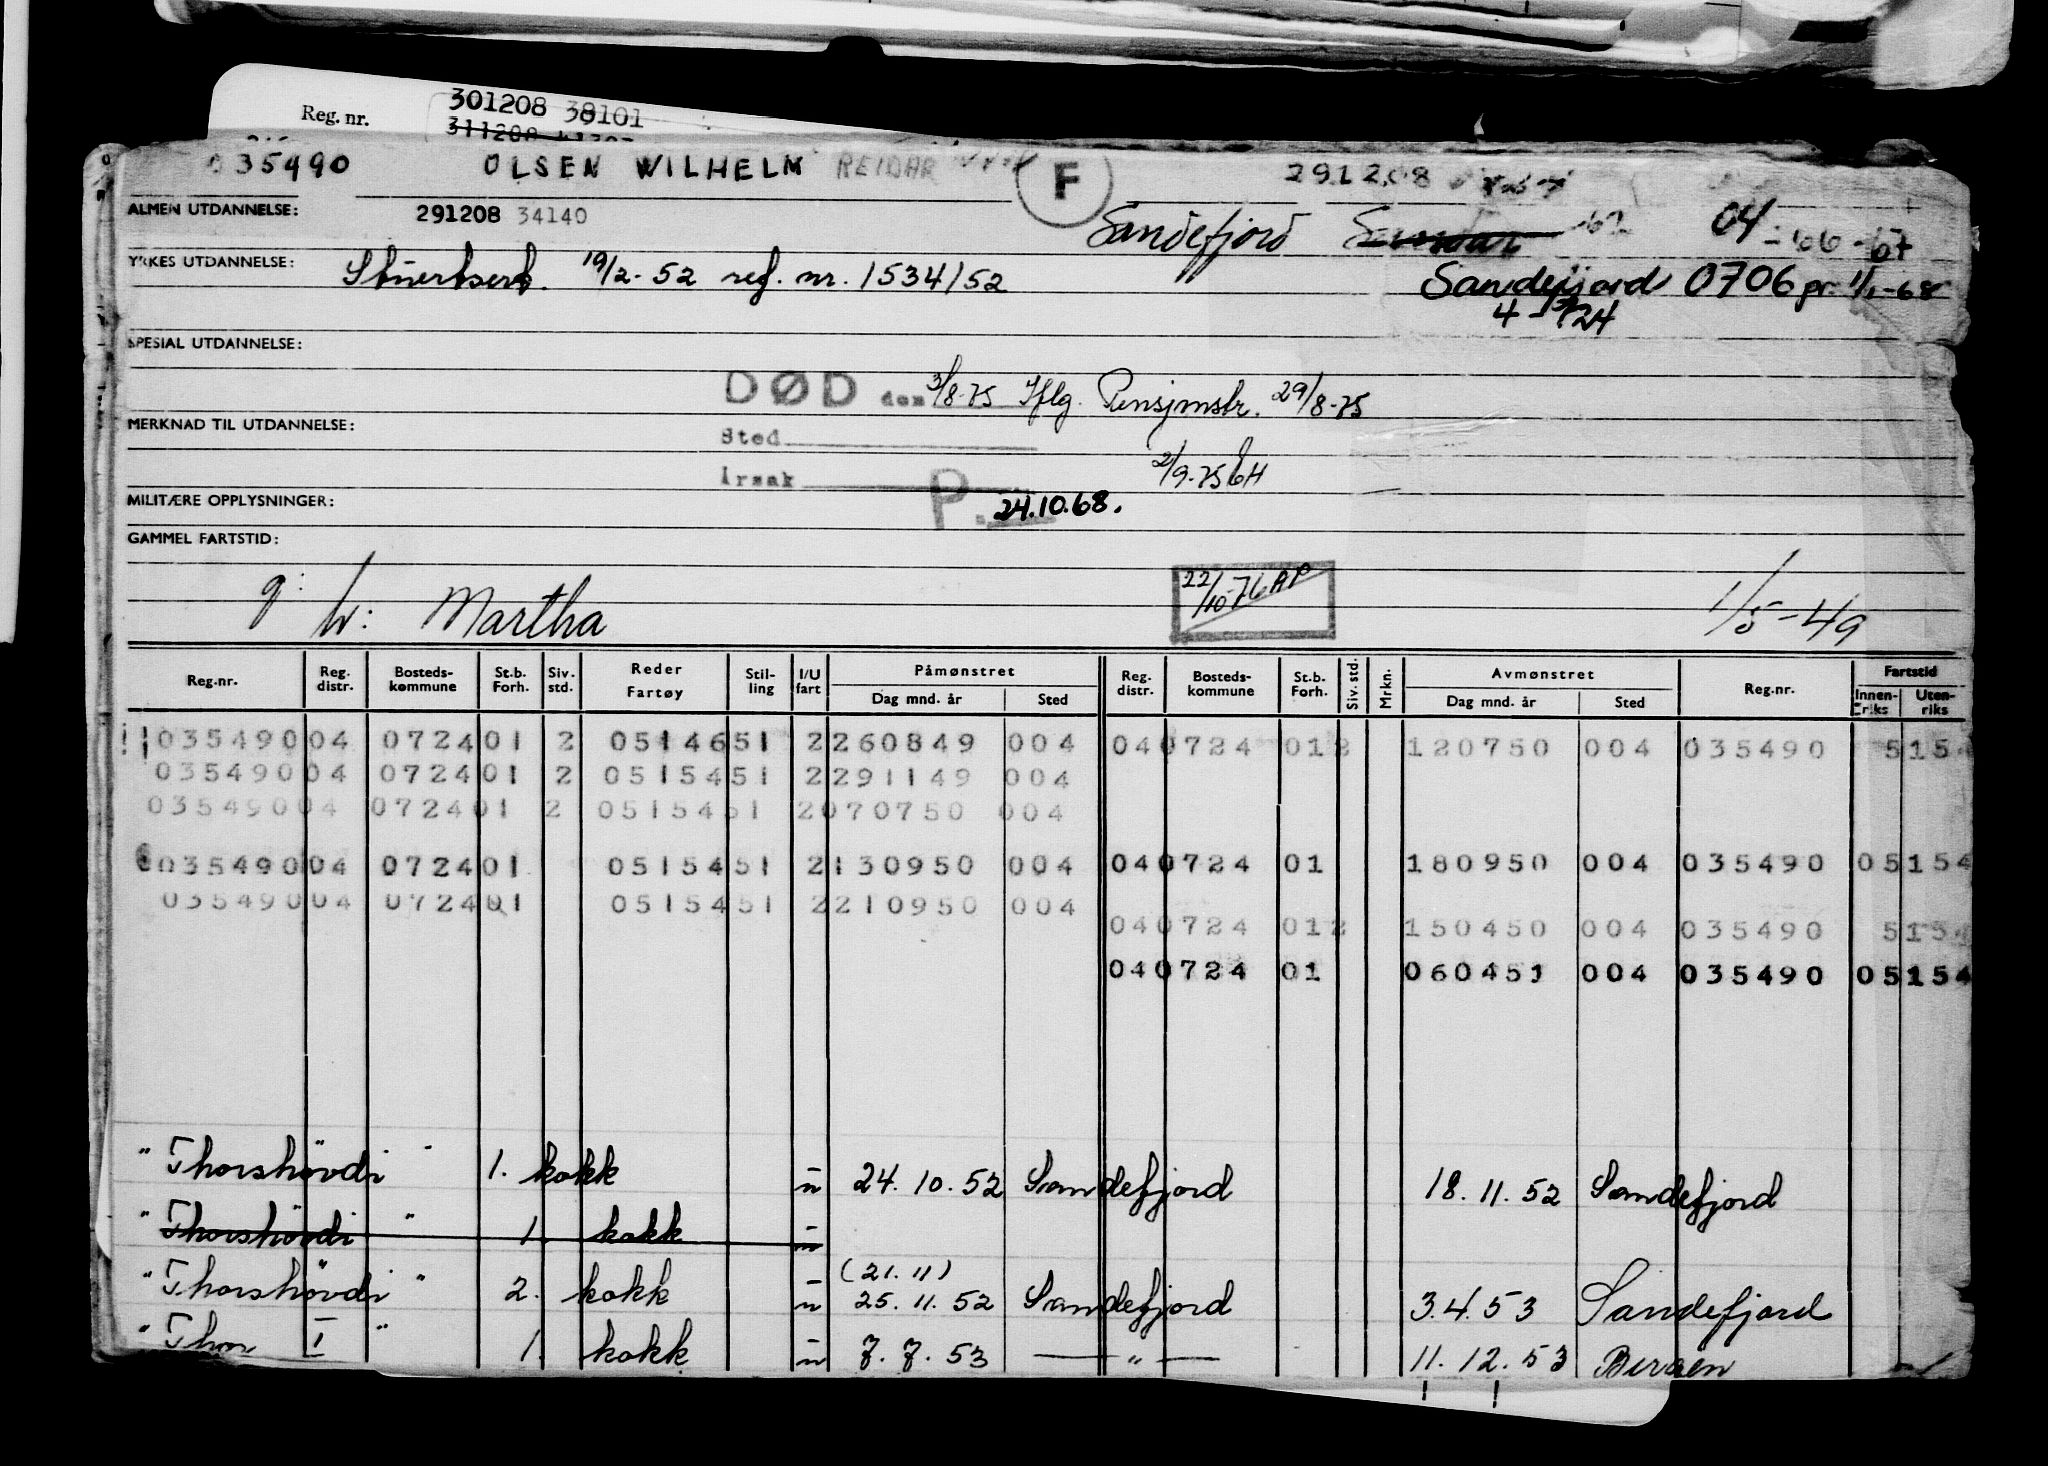 Reg. nr. 301208 38101
035490 OLSEN WILHELM REIDAR F 291208
ALMEN UTDANNELSE: 291208 34140 Sandefjord 04
YRKES UTDANNELSE: Stuertsert. 19/2-52 ref. nr. 1534/52 Sandefjord 0706 pr. 1/1-68
SPESIAL UTDANNELSE:
DØD den 3/8-75 Iflg. Pensjonstr. 29/8-75
MERKNAD TIL UTDANNELSE: Sted
Årsak 2/9-75
MILITÆRE OPPLYSNINGER: P. 24.10.68.
GAMMEL FARTSTID:
g: h: Martha 22/10-76 AP 1/5-49
Reg.nr. Reg. distr. Bosteds- kommune St.b. Forh. Siv. std. Reder Fartøy Stil- ling I/U fart Påmønstret Dag mnd. år Sted Reg. distr. Bosteds- kommune St.b. Forh. Siv. std. Mrkn. Avmønstret Dag mnd. år Sted Reg.nr. Fartstid Innen- riks Uten- riks
035490 04 0724 01 2 05146 51 2 260849 004 04 0724 01 2 120750 004 035490 5154
035490 04 0724 01 2 05154 51 2 291149 004
035490 04 0724 01 2 05154 51 2 070750 004
035490 04 0724 01 05154 51 2 130950 004 04 0724 01 180950 004 035490 05154
035490 04 0724 01 05154 51 2 210950 004
04 0724 01 2 150450 004 035490 5154
04 0724 01 060451 004 035490 05154
"Thorshövdi" 1. kokk u 24.10.52 Sandefjord 18.11.52 Sandefjord
"Thorshövdi" 1. kokk u
(21.11)
"Thorshövdi" 2. kokk u 25.11.52 Sandefjord 3.4.53 Sandefjord
"Thor I" 1. kokk u 7.7.53 — " — 11.12.53 Bergen